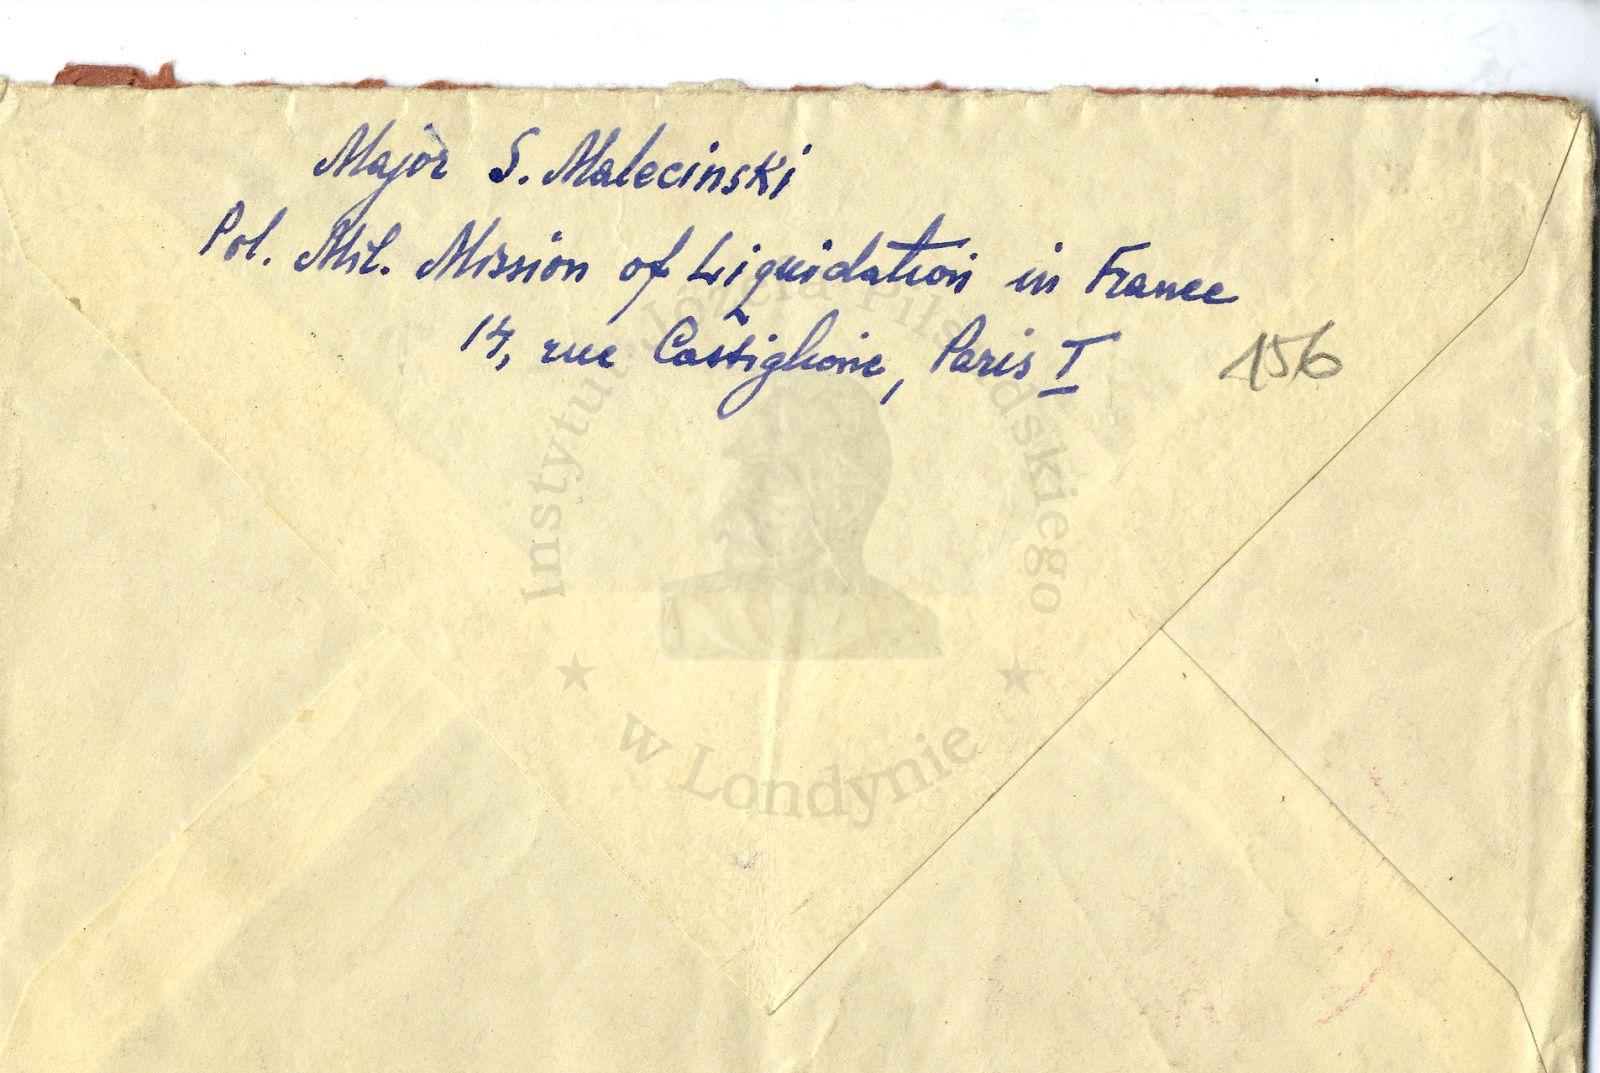 Major S. Malecinski
Pol. Mil. Mission of Liquidation in France
14, rue Castiglione, Paris I
156
Instytut Józefa Piłsudskiego
w Londynie